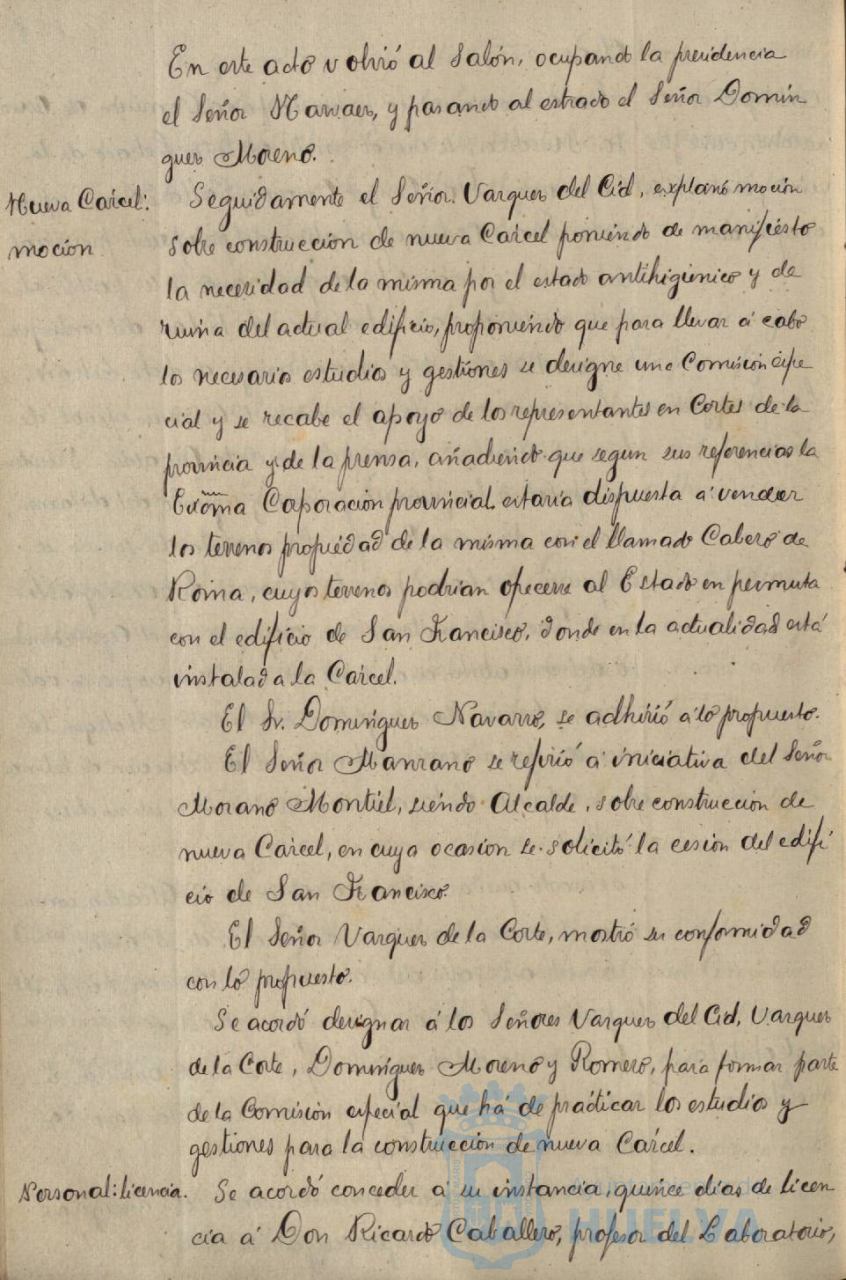 En este acto volvió al Salón, ocupando la presidencia
el Señor Narvaez, y pasando al estrado el Señor Domin
guez Moreno.
Nueva Cárcel: Seguidamente el Señor Vazquez del Cid, explanó moción
moción sobre construcción de nueva Cárcel poniendo de manifiesto
la necesidad de la misma por el estado antihigiénico y de
ruina del actual edificio, proponiendo que para llevar á cabo
los necesarios estudios y gestiones se designe una Comisión espe
cial y se recabe el apoyo de los representantes en Cortes de la
provincia y de la prensa, añadiendo que segun sus referencias la
Excma Corporación provincial estaria dispuesta á vender
los terrenos propiedad de la misma con el llamado Cabezo de
Roma, cuyos terrenos podrian ofrecerse al Estado en permuta
con el edificio de San Francisco, donde en la actualidad está
instalada la Cárcel.
El Sr. Dominguez Navarro, se adhirió á lo propuesto.
El Señor Manzano se refirió á iniciativa del Señor
Morano Montiel, siendo Alcalde, sobre construcción de
nueva Cárcel, en cuya ocasion se solicitó la cesión del edifi
cio de San Francisco.
El Señor Vazquez de la Corte, mostró su conformidad
con lo propuesto.
Se acordó designar á los Señores Vazquez del Cid, Vazquez
de la Corte, Dominguez Moreno y Romero, para formar parte
de la Comisión especial que há de prácticar los estudios y
gestiones para la construcción de nueva Cárcel.
Personal: licencia. Se acordó conceder á su instancia, quince dias de licen
cia á Don Ricardo Caballero, profesor del Laboratorio,
HUELVA